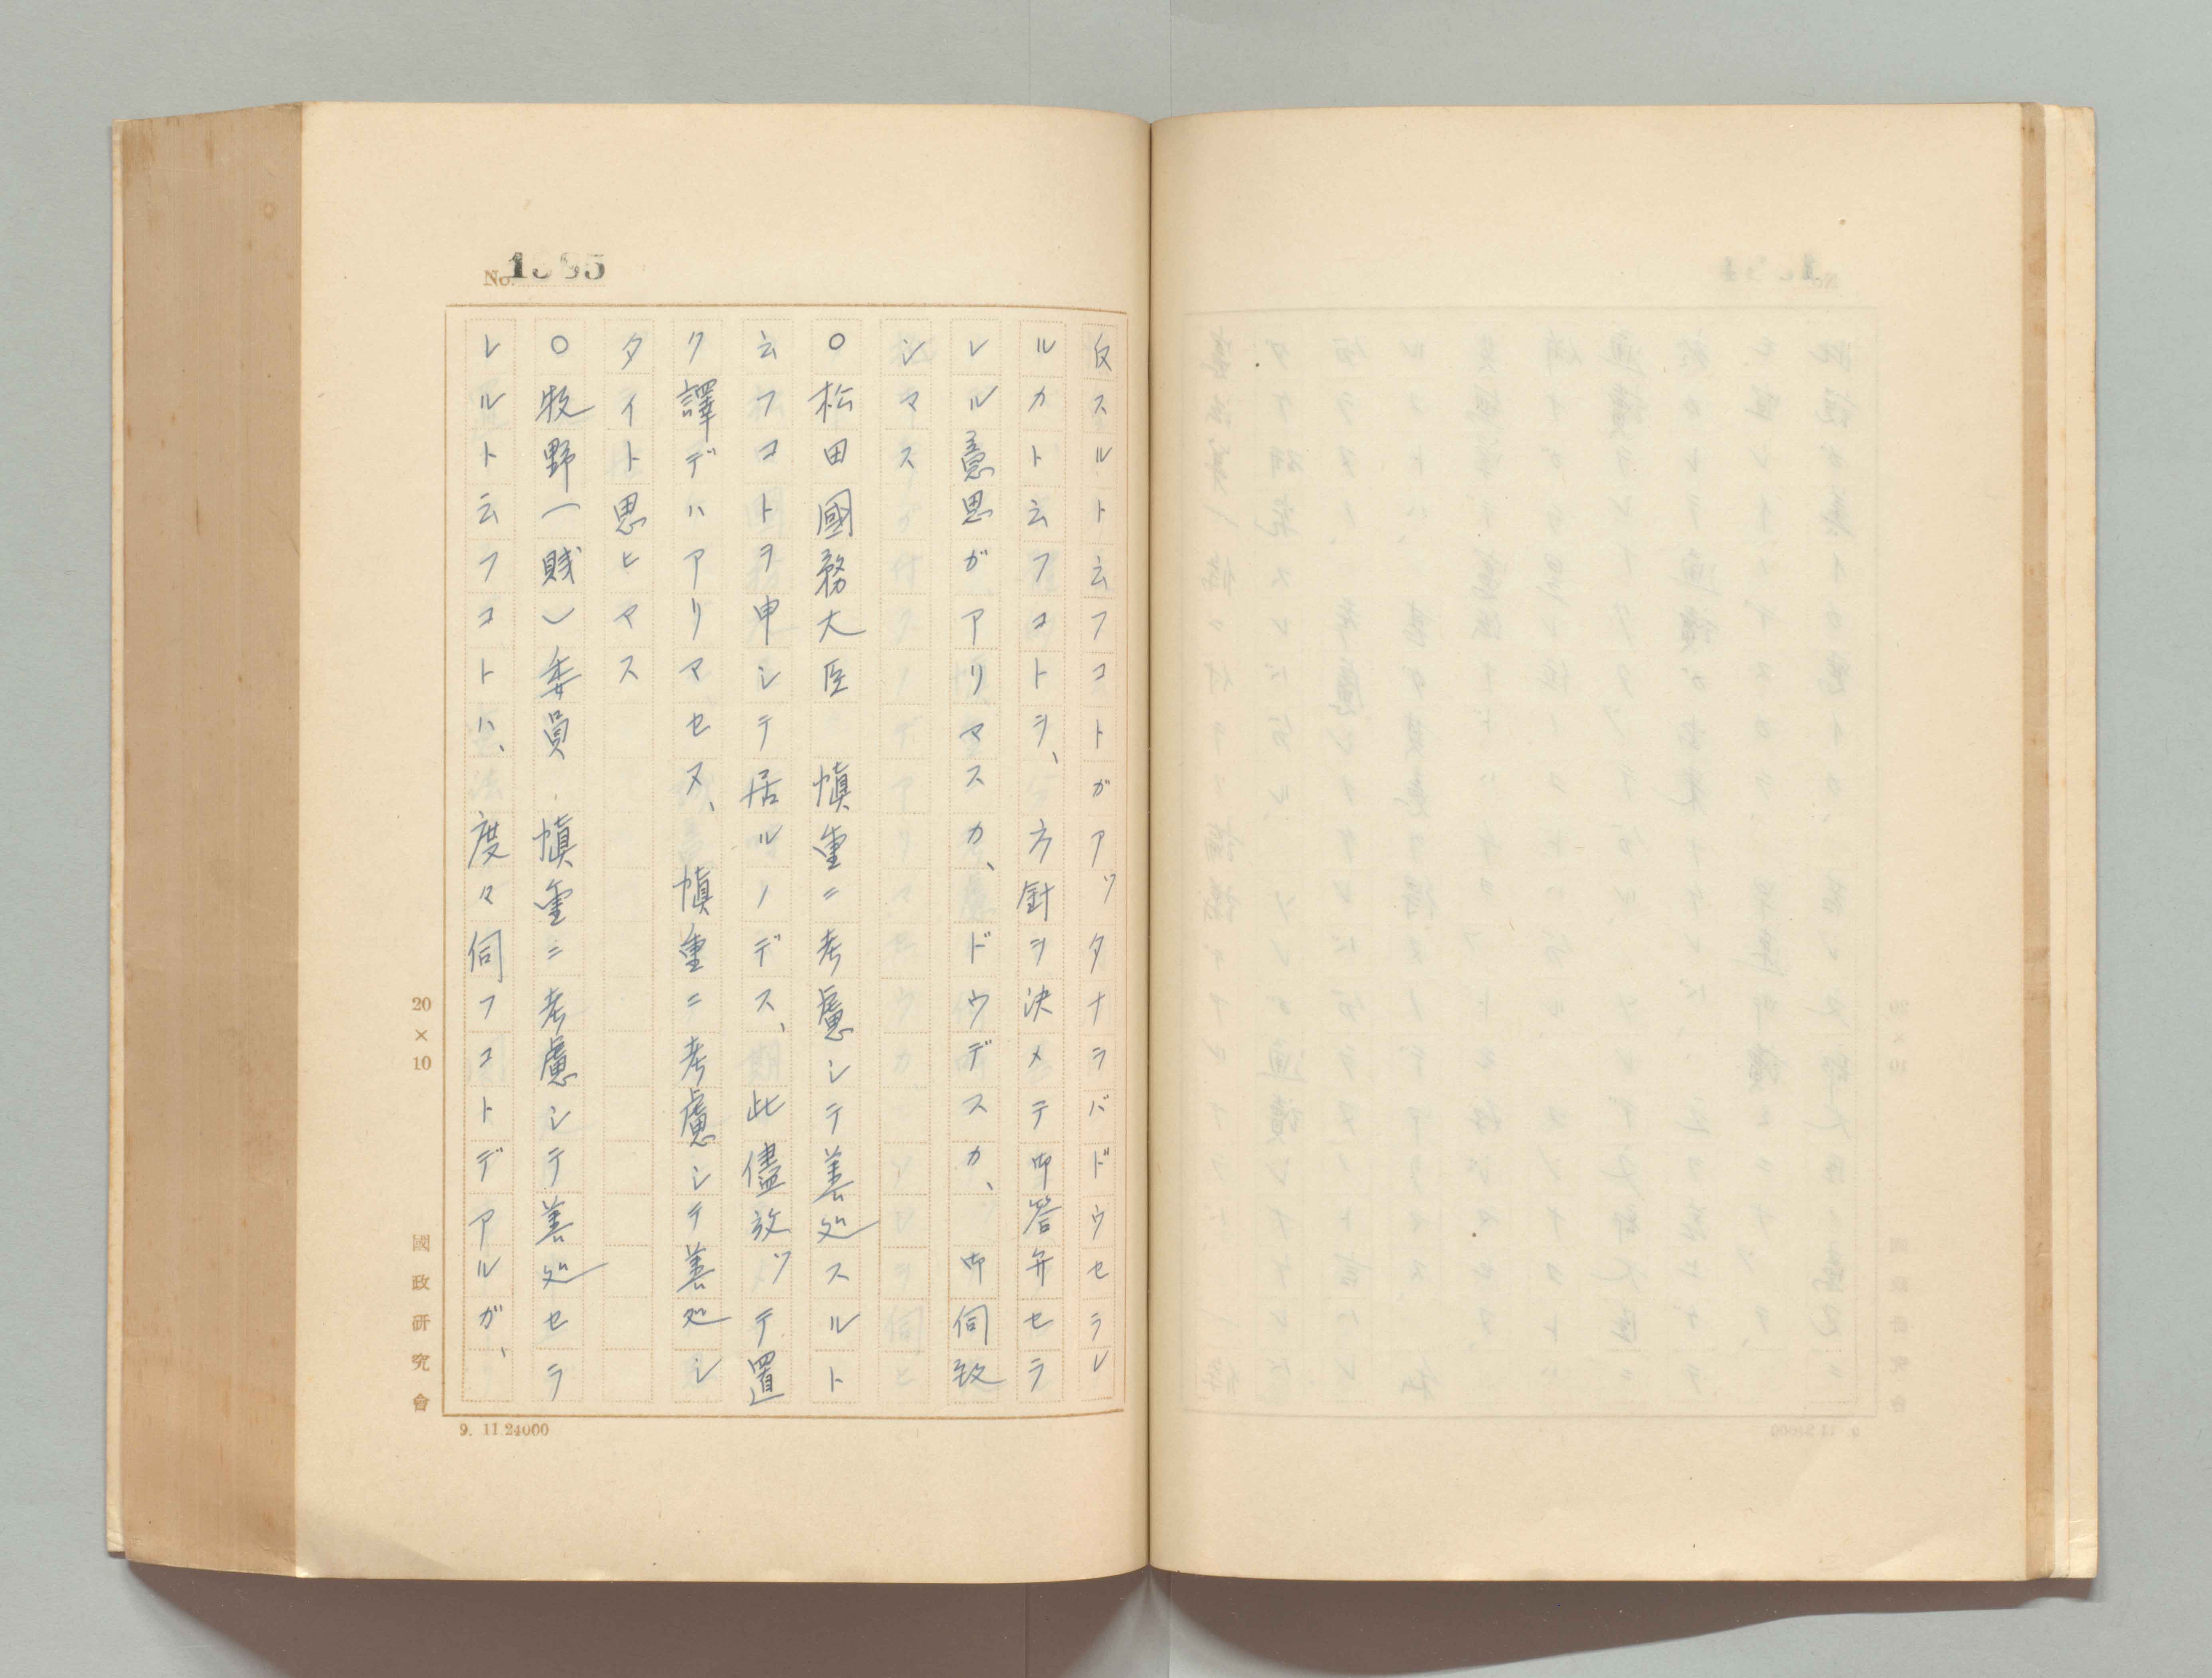 No. 1335
反スルト云フコトガアッタナラバドウセラレ
ルカト云フコトヲ、方針ヲ決メテ御答弁セラ
レル意思ガアリマスカ、ドウデスカ、御伺致
シマス
○松田國務大臣　愼重ニ考慮シテ善処スルト
云フコトヲ申シテ居ルノデス、此儘放ッテ置
ク譯デハアリマセヌ、愼重ニ考慮シテ善処シ
タイト思ヒマス
○牧野（賤）委員　愼重ニ考慮シテ善処セラ
レルト云フコトハ、度々伺フコトデアルガ、
20×10
國政研究會
9. 11 24000